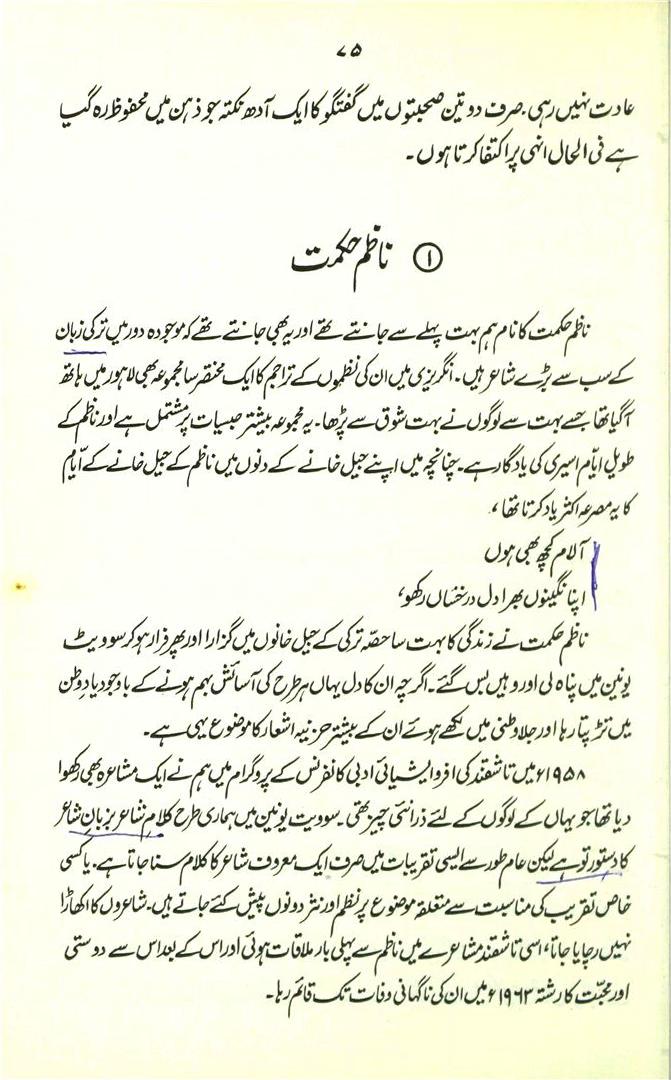 ۷۵
عادت نہیں رہی. صرف دو تین صحبتوں میں گفتگو کا ایک آدھ نکتہ جو ذہن میں محفوظ رہ گیا
ہے فی الحال انہی پر اکتفا کرتا ہوں ۔
① ناظم حکمت
ناظم حکمت کا نام ہم بہت پہلے سے جانتے تھے اور یہ بھی جانتے تھے کہ موجودہ دور میں ترکی زبان
کے سب سے بڑے شاعر ہیں ۔ انگریزی میں ان کی نظموں کے تراجم کا ایک مختصر سا مجموعہ بھی لاہور میں ہاتھ
آگیا تھا جسے بہت سے لوگوں نے بہت شوق سے پڑھا ۔ یہ مجموعہ بیشتر حبسیات پر مشتمل ہے اور ناظم کے
طویل ایّام اسیری کی یادگار ہے ۔ چنانچہ میں اپنے جیل خانے کے دنوں میں ناظم کے جیل خانے کے ایّام
کا یہ مصرعہ اکثر یاد کرتا تھا ،
آلام کچھ بھی ہوں
اپنا نگینوں بھرا دل درخشاں رکھو ،
ناظم حکمت نے زندگی کا بہت سا حصّہ ترکی کے جیل خانوں میں گزارا اور پھر فرار ہو کر سوویٹ
یونین میں پناہ لی اور وہیں بس گئے ۔ اگرچہ ان کا دل یہاں ہر طرح کی آسائش بہم ہونے کے باوجود یادِ وطن
میں تڑپتا رہا اور جلاوطنی میں لکھے ہوئے ان کے بیشتر حزنیہ اشعار کا موضوع یہی ہے ۔
۱۹۵۸ء میں تاشقند کی افرو ایشیائی ادبی کانفرنس کے پروگرام میں ہم نے ایک مشاعرہ بھی رکھوا
دیا تھا جو یہاں کے لوگوں کے لئے ذرا نئی چیز تھی ۔ سوویت یونین میں ہماری طرح کلام شاعر بزبانِ شاعر
کا دستور تو ہے لیکن عام طور سے ایسی تقریبات میں صرف ایک معروف شاعر کا کلام سنا جاتا ہے ۔ یا کسی
خاص تقریب کی مناسبت سے متعلقہ موضوع پر نظم اور نثر دونوں پیش کئے جاتے ہیں ۔ شاعروں کا اکھاڑا
نہیں رچایا جاتا ، اسی تاشقند مشاعرے میں ناظم سے پہلی بار ملاقات ہوئی اور اس کے بعد اس سے دوستی
اور محبّت کا رشتہ ۱۹۶۳ء میں ان کی ناگہانی وفات تک قائم رہا ۔